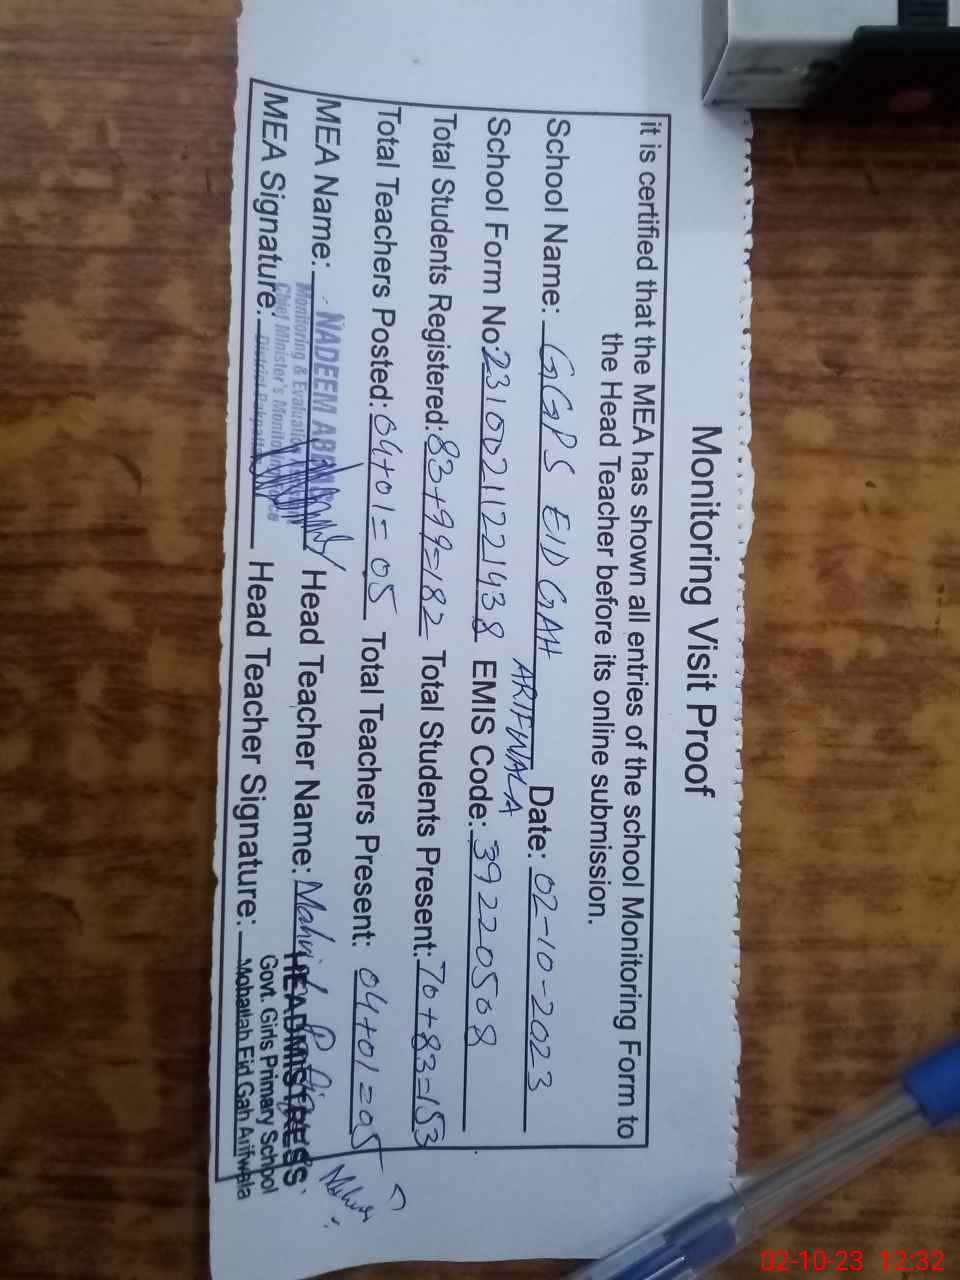 Monitoring Visit Proof
it is certified that the MEA has shown all entries of the school Monitoring Form to
the Head Teacher before its online submission.
School Name: GGPS EID GAH ARIFWALA Date: 02-10-2023
School Form No: 23100211221438 EMIS Code: 39220508
Total Students Registered: 83+99=182 Total Students Present: 70+83=153
Total Teachers Posted: 04+01=05 Total Teachers Present: 04+01=05
MEA Name: NADEEM Head Teacher Name:
Monitoring & Evaluation
Chief Minister's Monitoring
District Pakpattan
MEA Signature: Head Teacher Signature:
HEADMISTRESS
Govt. Girls Primary School
Mohallah Eid Gah Arifwala
02-10-23 12:32